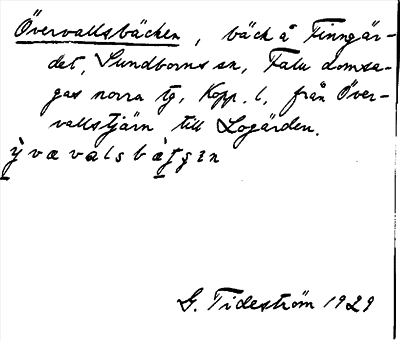 Övervallsbäcken, bäck å Finngär-
det, Sundborns sn, Falu domsa-
gas norra tg, Kopp. l, från Över-
vallstjärn till Logärden.
G. Tideström 1929